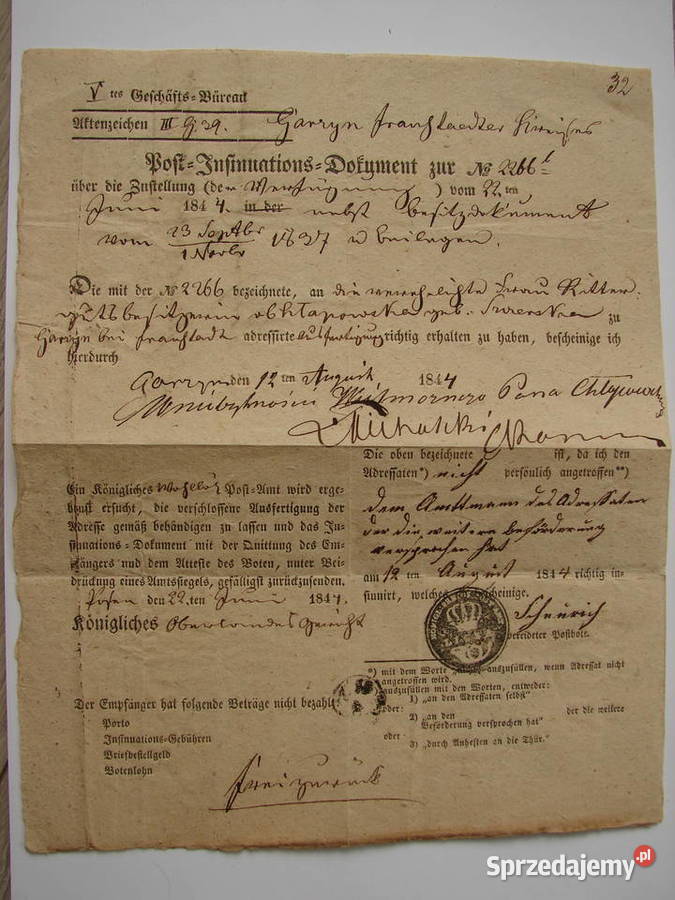 32
V tes Geschäfts-Büreau
Aktenzeichen III G 39. Garzyn Fraustaedter Kreises
Post-Insinuations-Dokument zur № 2266
über die Zustellung (der Verfügung) vom 22. ten
Juni 1844. in der nebst Besitzdokument
vom 23 Septbr 1837 u Beilagen.
1 Novbr
Die mit der № 2266 bezeichnete, an die verehelichte Frau Ritter-
gutsbesitzerin geb. zu
Garzyn bei Fraustadt adressirte Ausfertigung richtig erhalten zu haben, bescheinige ich
hierdurch
Garzyn den 12 ten August 1844
Pana
Michalski
Die oben bezeichnete ist, da ich den
Adressaten*) nicht persönlich angetroffen**)
dem Amtmann des Adressaten
der die weitere Beförderung
versprochen hat
am 12 ten August 1844 richtig in-
sinuirt, welches bescheinige.
Scheurich
vereideter Postbote.
Ein Königliches Wohllöb Post-Amt wird erge-
benst ersucht, die verschlossene Ausfertigung der
Adresse gemäß behändigen zu lassen und das In-
sinuations-Dokument mit der Quittung des Em-
pfängers und dem Atteste des Boten, unter Bei-
drückung eines Amtssiegels, gefälligst zurückzusenden.
Posen den 22. ten Juni 1844.
Königliches Oberlandes Gericht
*) mit dem Worte auszufüllen, wenn Adressat nicht
angetroffen wird.
auszufüllen mit den Worten, entweder:
1) „an den Adressaten selbst"
oder:
2) „an den der die weitere
Beförderung versprochen hat"
oder
3) „durch Anheften an die Thür."
Der Empfänger hat folgende Beträge nicht bezahlt:
Porto
Insinuations-Gebühren
Briefbestellgeld
Botenlohn
frei zurück
Sprzedajemy.pl